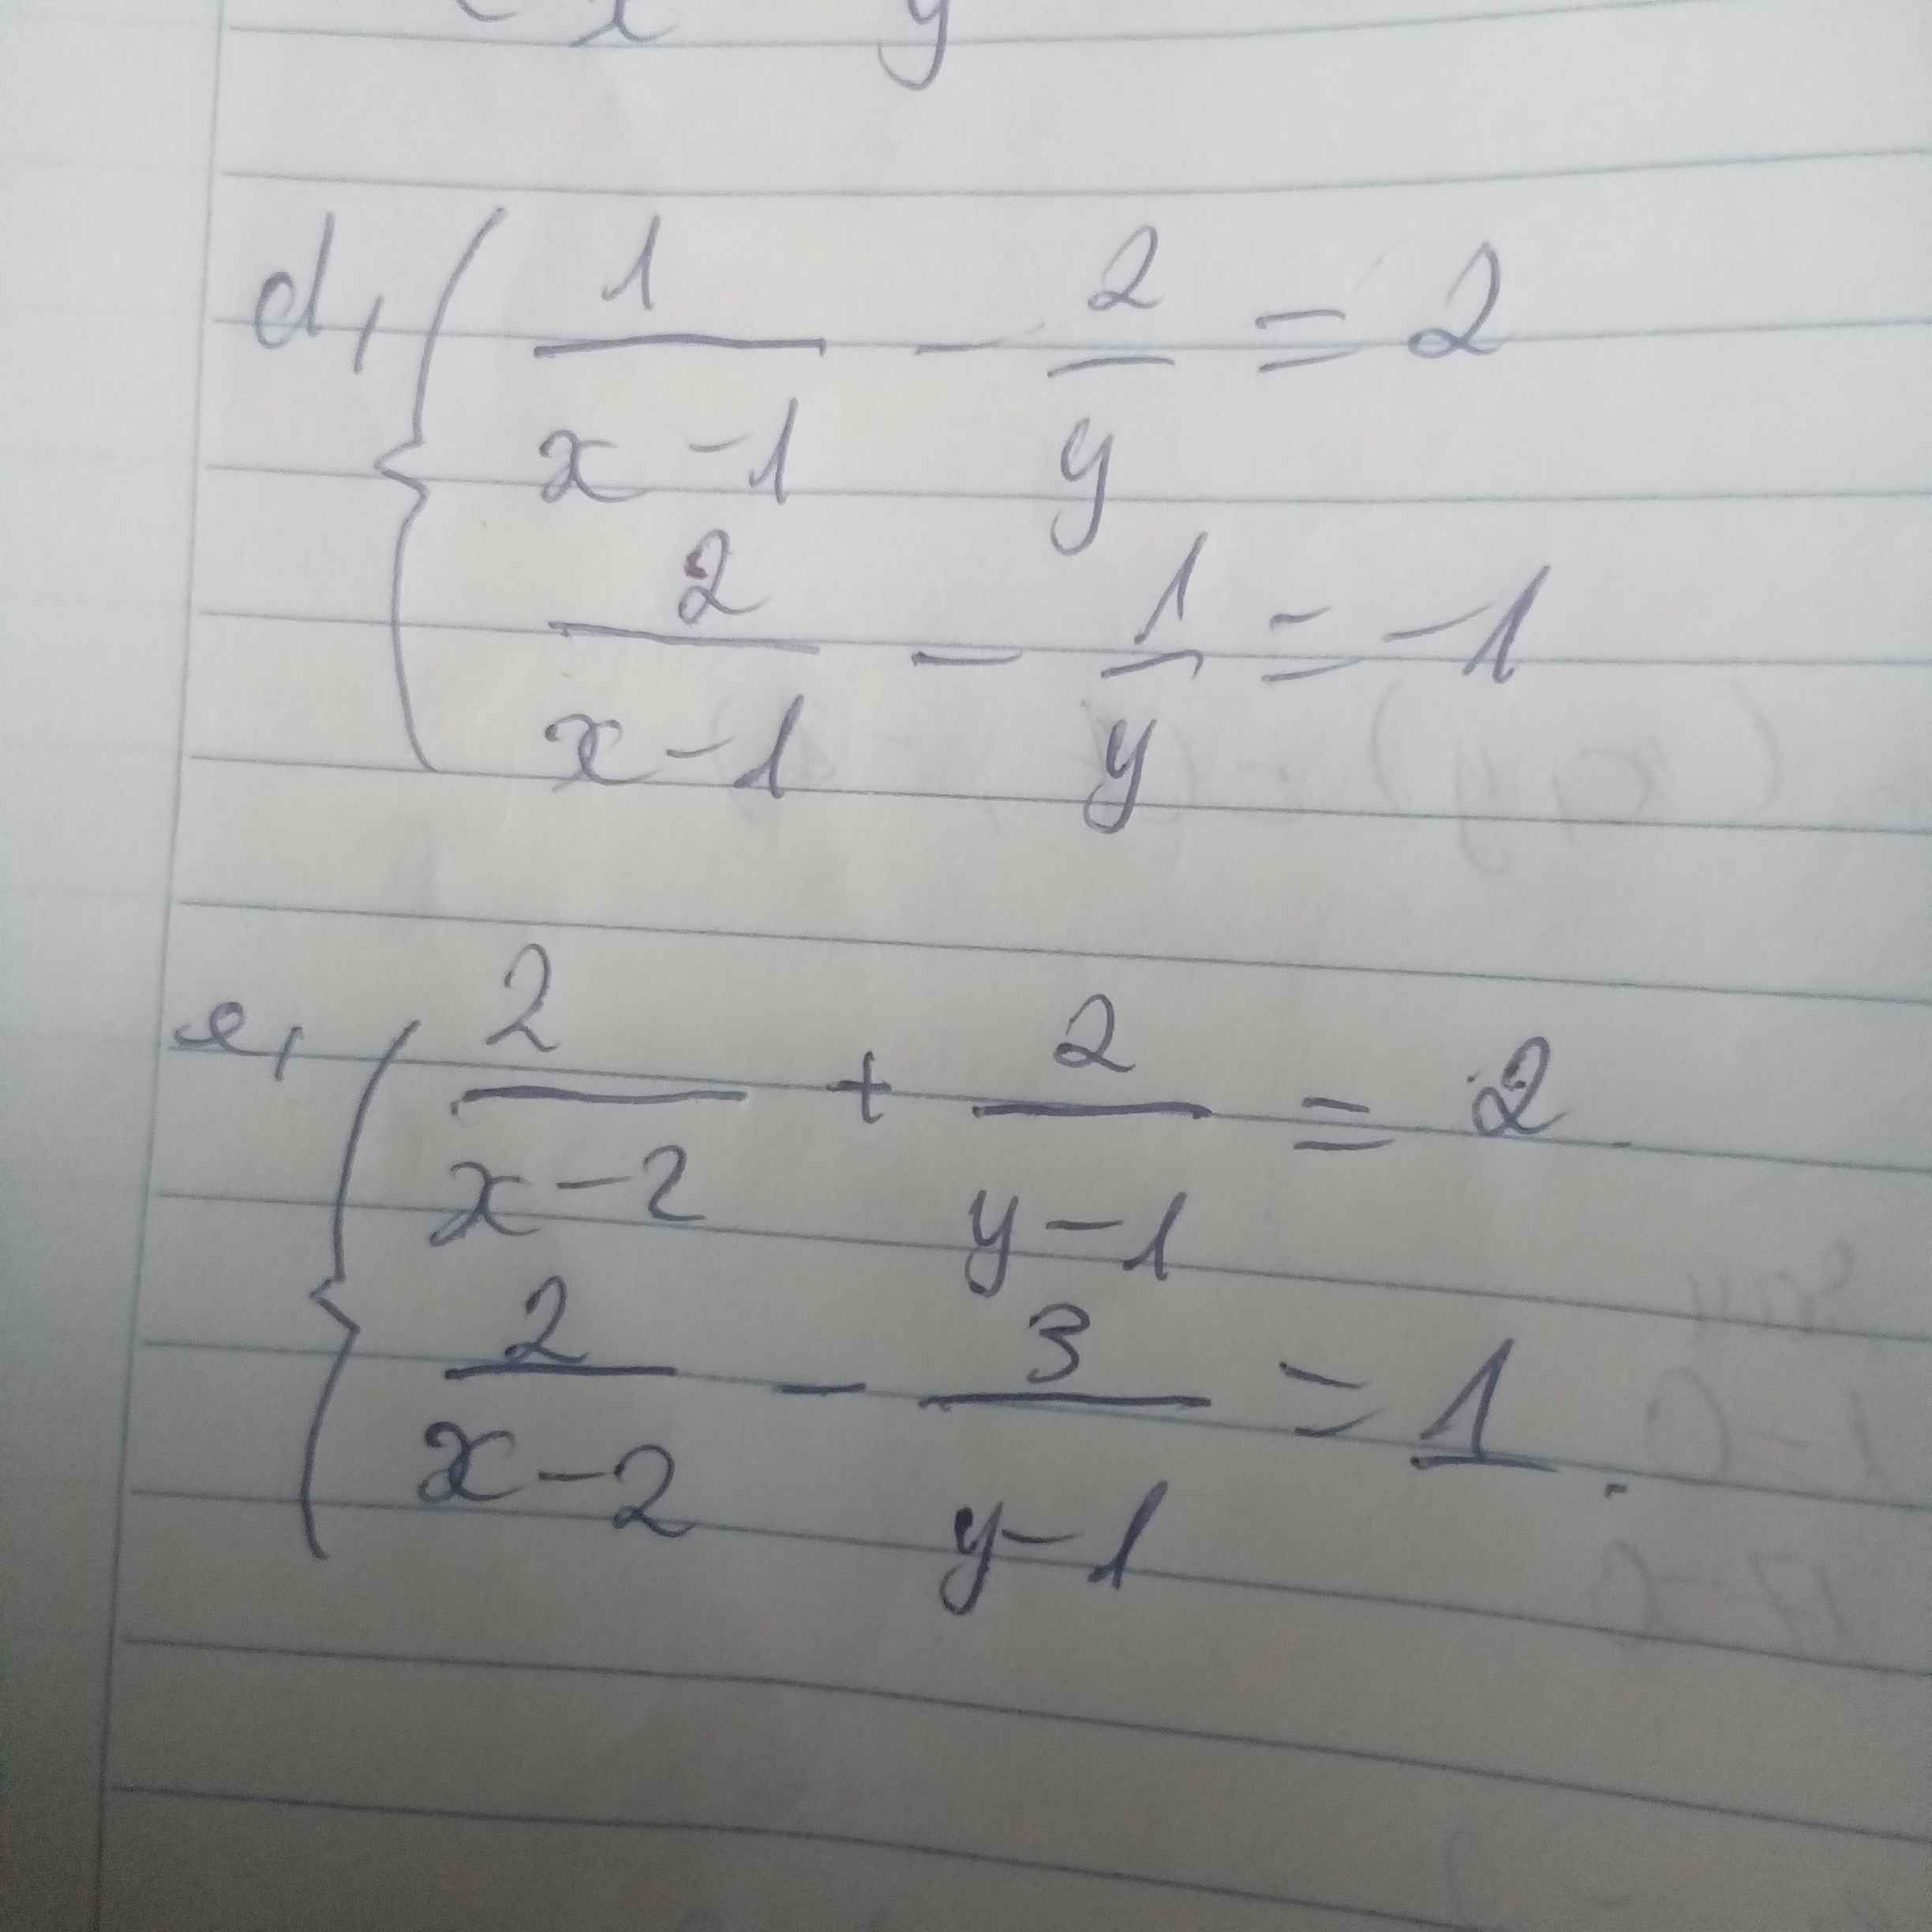 x y
d, { 1/(x-1) - 2/y = 2
2/(x-1) - 1/y = -1
e, { 2/(x-2) + 2/(y-1) = 2
2/(x-2) - 3/(y-1) = 1.